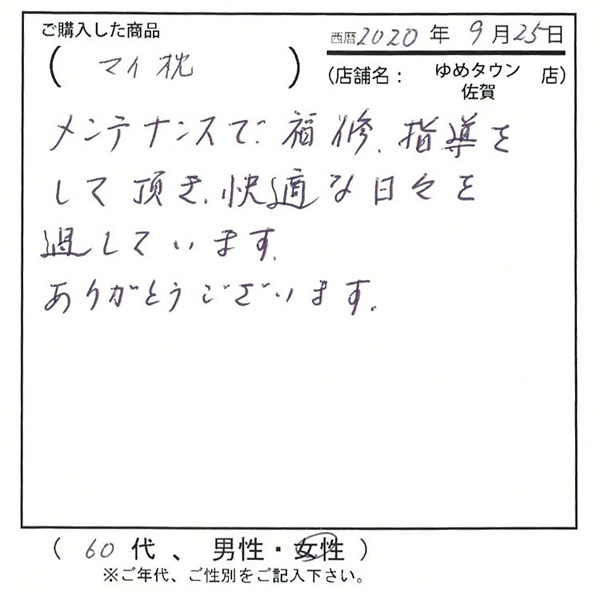 ご購入した商品
( マイ枕 )
西暦2020年 9月25日
(店舗名: ゆめタウン佐賀 店)
メンテナンスで、補修、指導を
して頂き、快適な日々を
過しています。
ありがとうございます。
( 60代、男性・女性 )
※ご年代、ご性別をご記入下さい。